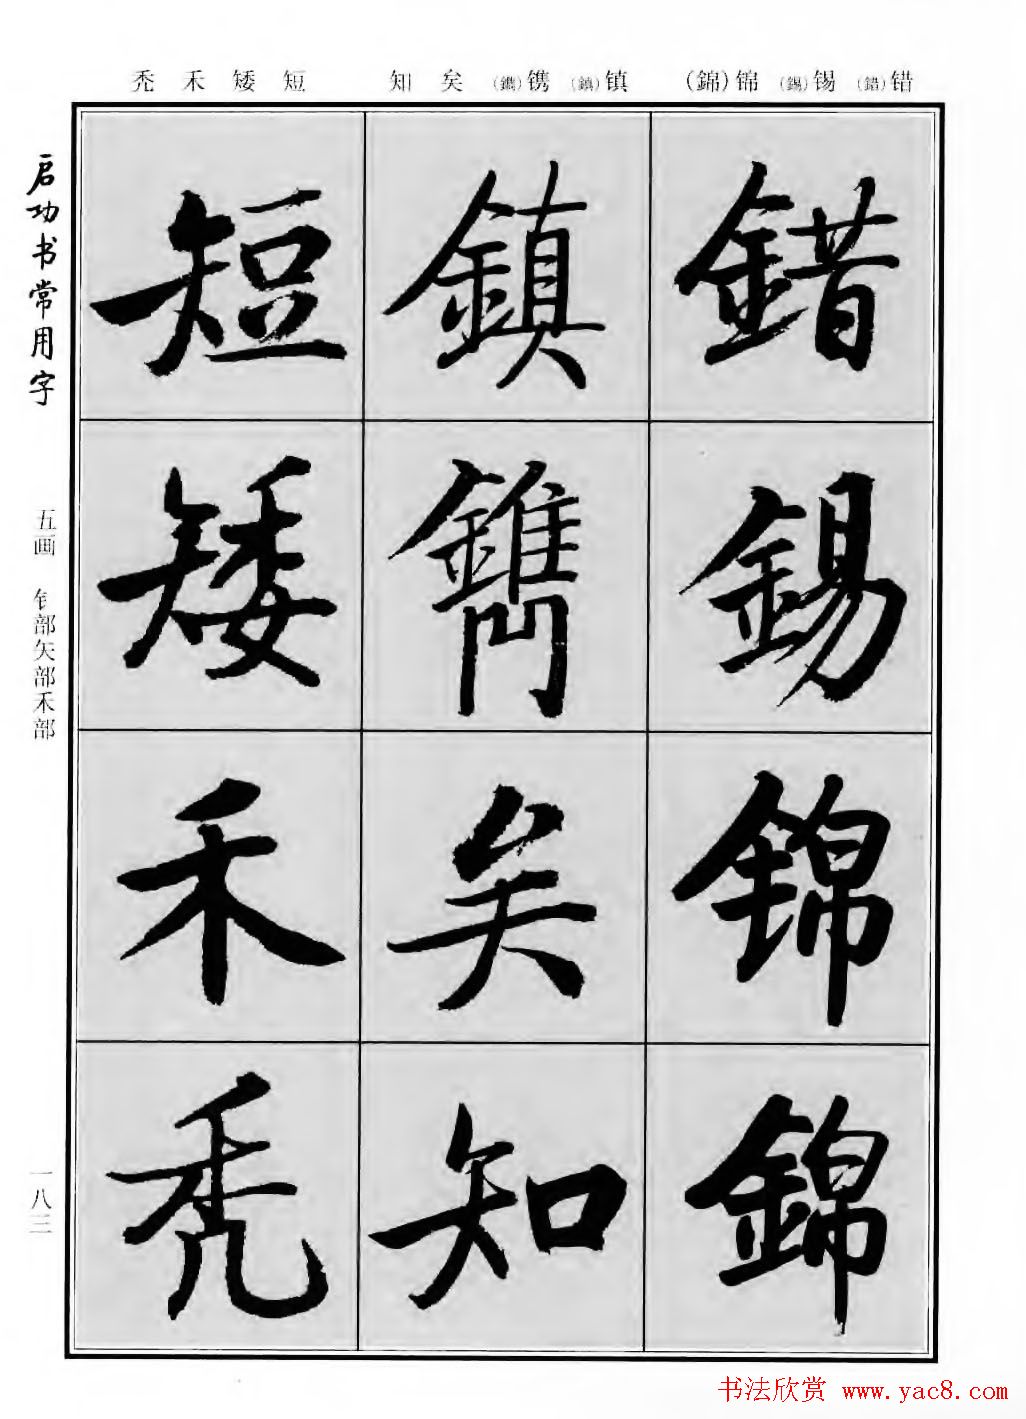 错(錯) 锡(錫) 锦(錦)
镇(鎮) 镌(鐫) 矣 知
短 矮 禾 秃
启功书常用字
五画 钅部矢部禾部
一八三
錯
錫
錦
錦
鎮
鐫
矣
知
短
矮
禾
秃
书法欣赏 www.yac8.com